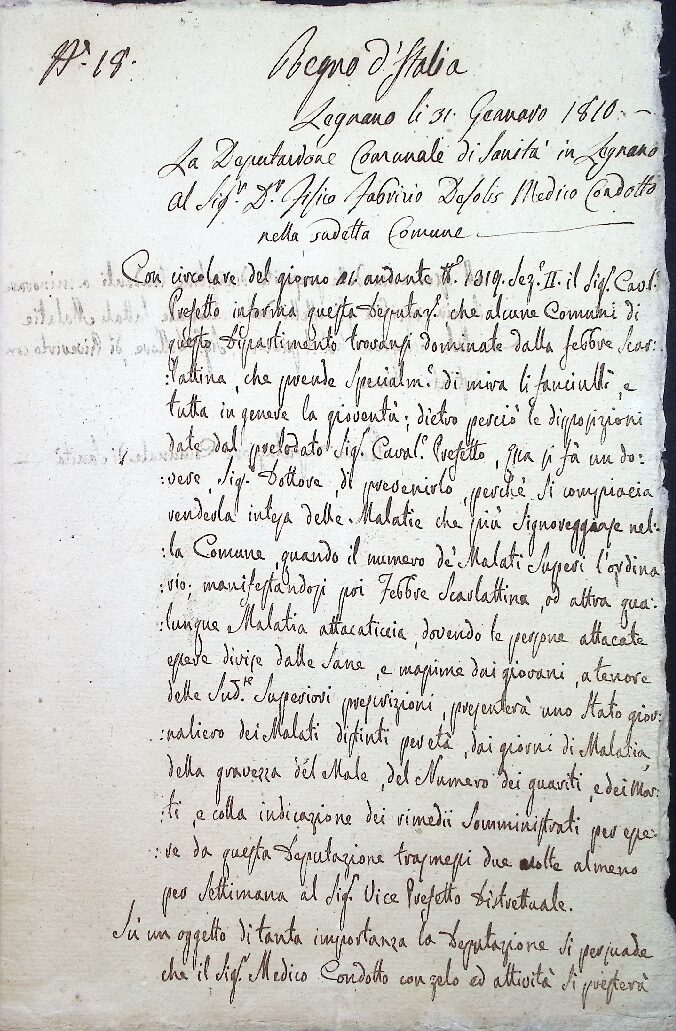 N.º 18.
Regno d'Italia
Legnano li 31. Gennaro 1810.
La Deputazione Comunale di Sanità in Legnano
al Sig.r D.r Fisico Fabrizio Desolis Medico Condotto
nella sudetta Comune
Con circolare del giorno 21 andante N.º 1319. Sez.e II. il Sig.r Caval.e
Prefetto informa questa Deputaz.e che alcune Comuni di
questo Dipartimento trovansi dominate dalla febbre Scar:
:lattina, che prende Specialm.e di mira li fanciulli, e
tutta in genere la gioventù; dietro perciò le disposizioni
date dal prelodato Sig.r Caval.e Prefetto, si fà un do:
:vere, Sig.r Dottore, di prevenirlo, perchè si compiacia
renderla intesa delle Malatie che più Signoreggiasse nel:
:la Comune, quando il numero de' Malati Superi l'ordina
:rio; manifestandosi poi Febbre Scarlattina, od altra qua:
:lunque Malatia attacaticcia, dovendo le persone attacate
essere divise dalle Sane, e massime dai giovani, a tenore
delle Sud.te Superiori prescrizioni, presenterà uno Stato gior:
:naliero dei Malati distinti per età, dai giorni di Malatia,
della gravezza del Male, del Numero dei guariti, e dei Mor:
:ti, e colla indicazione dei rimedii Somministrati per esse:
:re da questa Deputazione trasmessi due volte almeno
per Settimana al Sig.r Vice Prefetto Distrettuale.
Sù un oggetto di tanta importanza la Deputazione si persuade
che il Sig.r Medico Condotto con zelo ed attività si presterà